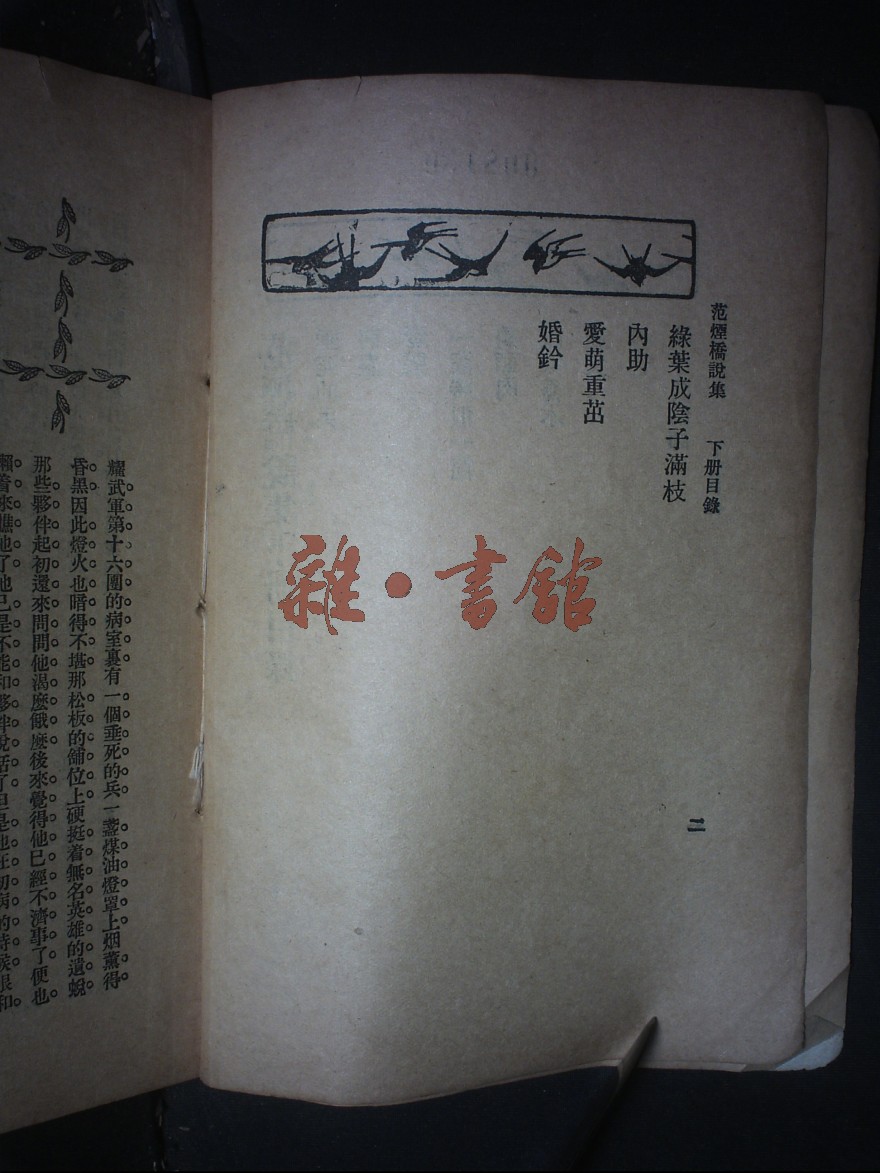 范煙橋說集　下册目錄
綠葉成陰子滿枝
內助
愛萌重茁
婚鈐
二
耀武軍第十六團的病室裏有一個垂死的兵一盞煤油燈罩上烟薰得
昏黑因此燈火也暗得不堪那松板的舖位上硬挺着無名英雄的遺蛻
那些夥伴起初還來問問他渴麼餓麼後來覺得他已經不濟事了便也
雜·書館